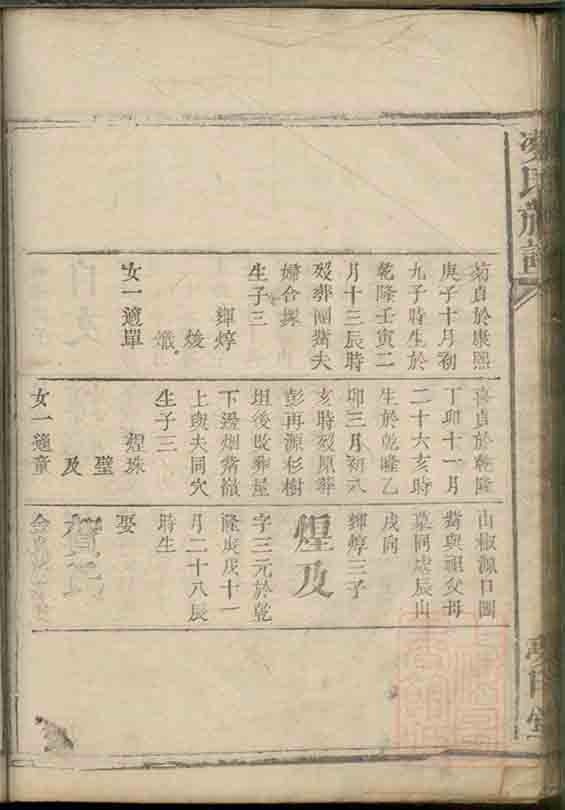 氏族譜
菊貞於康熙
庚子十月初
九子時生於
乾隆壬寅二
月十三辰時
歿葬團鴜夫
婦合塚
生子三
輝焞
焌
熾
女一適單
喜貞於乾隆
丁卯十一月
二十六亥時
生於乾隆乙
卯三月初八
亥時歿原葬
彭再源杉樹
坦後改葬屋
下邊烟鴜嶺
上與夫同穴
生子三
煋珠
璧
及
女一適童
山椒源口團
鴜與祖父母
墓同處辰山
戌向
輝焞三子
煋及
字三元於乾
隆庚戌十一
月二十八辰
時生
娶